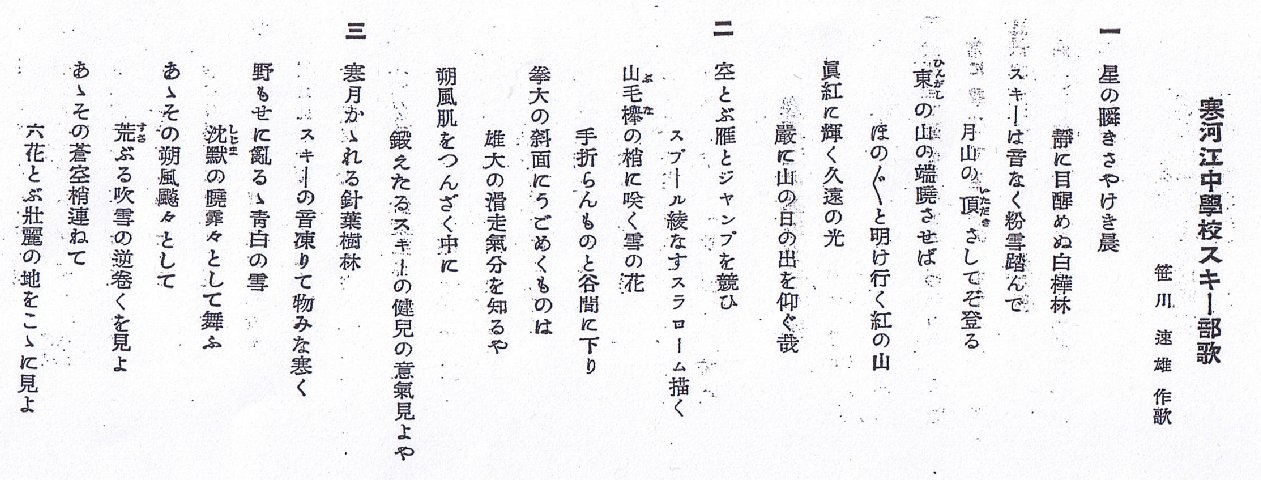 寒河江中學校スキー部歌
笹川速雄作歌
一
星の瞬きさやけき晨
靜に目醒めぬ白樺林
スキーは音なく粉雪踏んで
月山の頂さしてぞ登る
いただき
東の山の端曉させば
ひんがし
ほの〴〵と明け行く紅の山
眞紅に輝く久遠の光
嚴に山の日の出を仰ぐ哉
二
空とぶ雁とジャンプを競ひ
スプール綾なすスラローム描く
山毛欅の梢に咲く雪の花
ぶな
手折らんものと谷間に下り
拳大の斜面にうごめくものは
雄大の滑走氣分を知るや
朔風肌をつんざく中に
鍛えたるスキーの健兒の意氣見よや
三
寒月かゝれる針葉樹林
スキーの音凍りて物みな寒く
野もせに亂るゝ青白の雪
沈默の曉霏々として舞ふ
しじま
あゝその朔風飈々として
荒ぶる吹雪の逆卷くを見よ
すさ
あゝその蒼空梢連ねて
六花とぶ壯麗の地をこゝに見よ